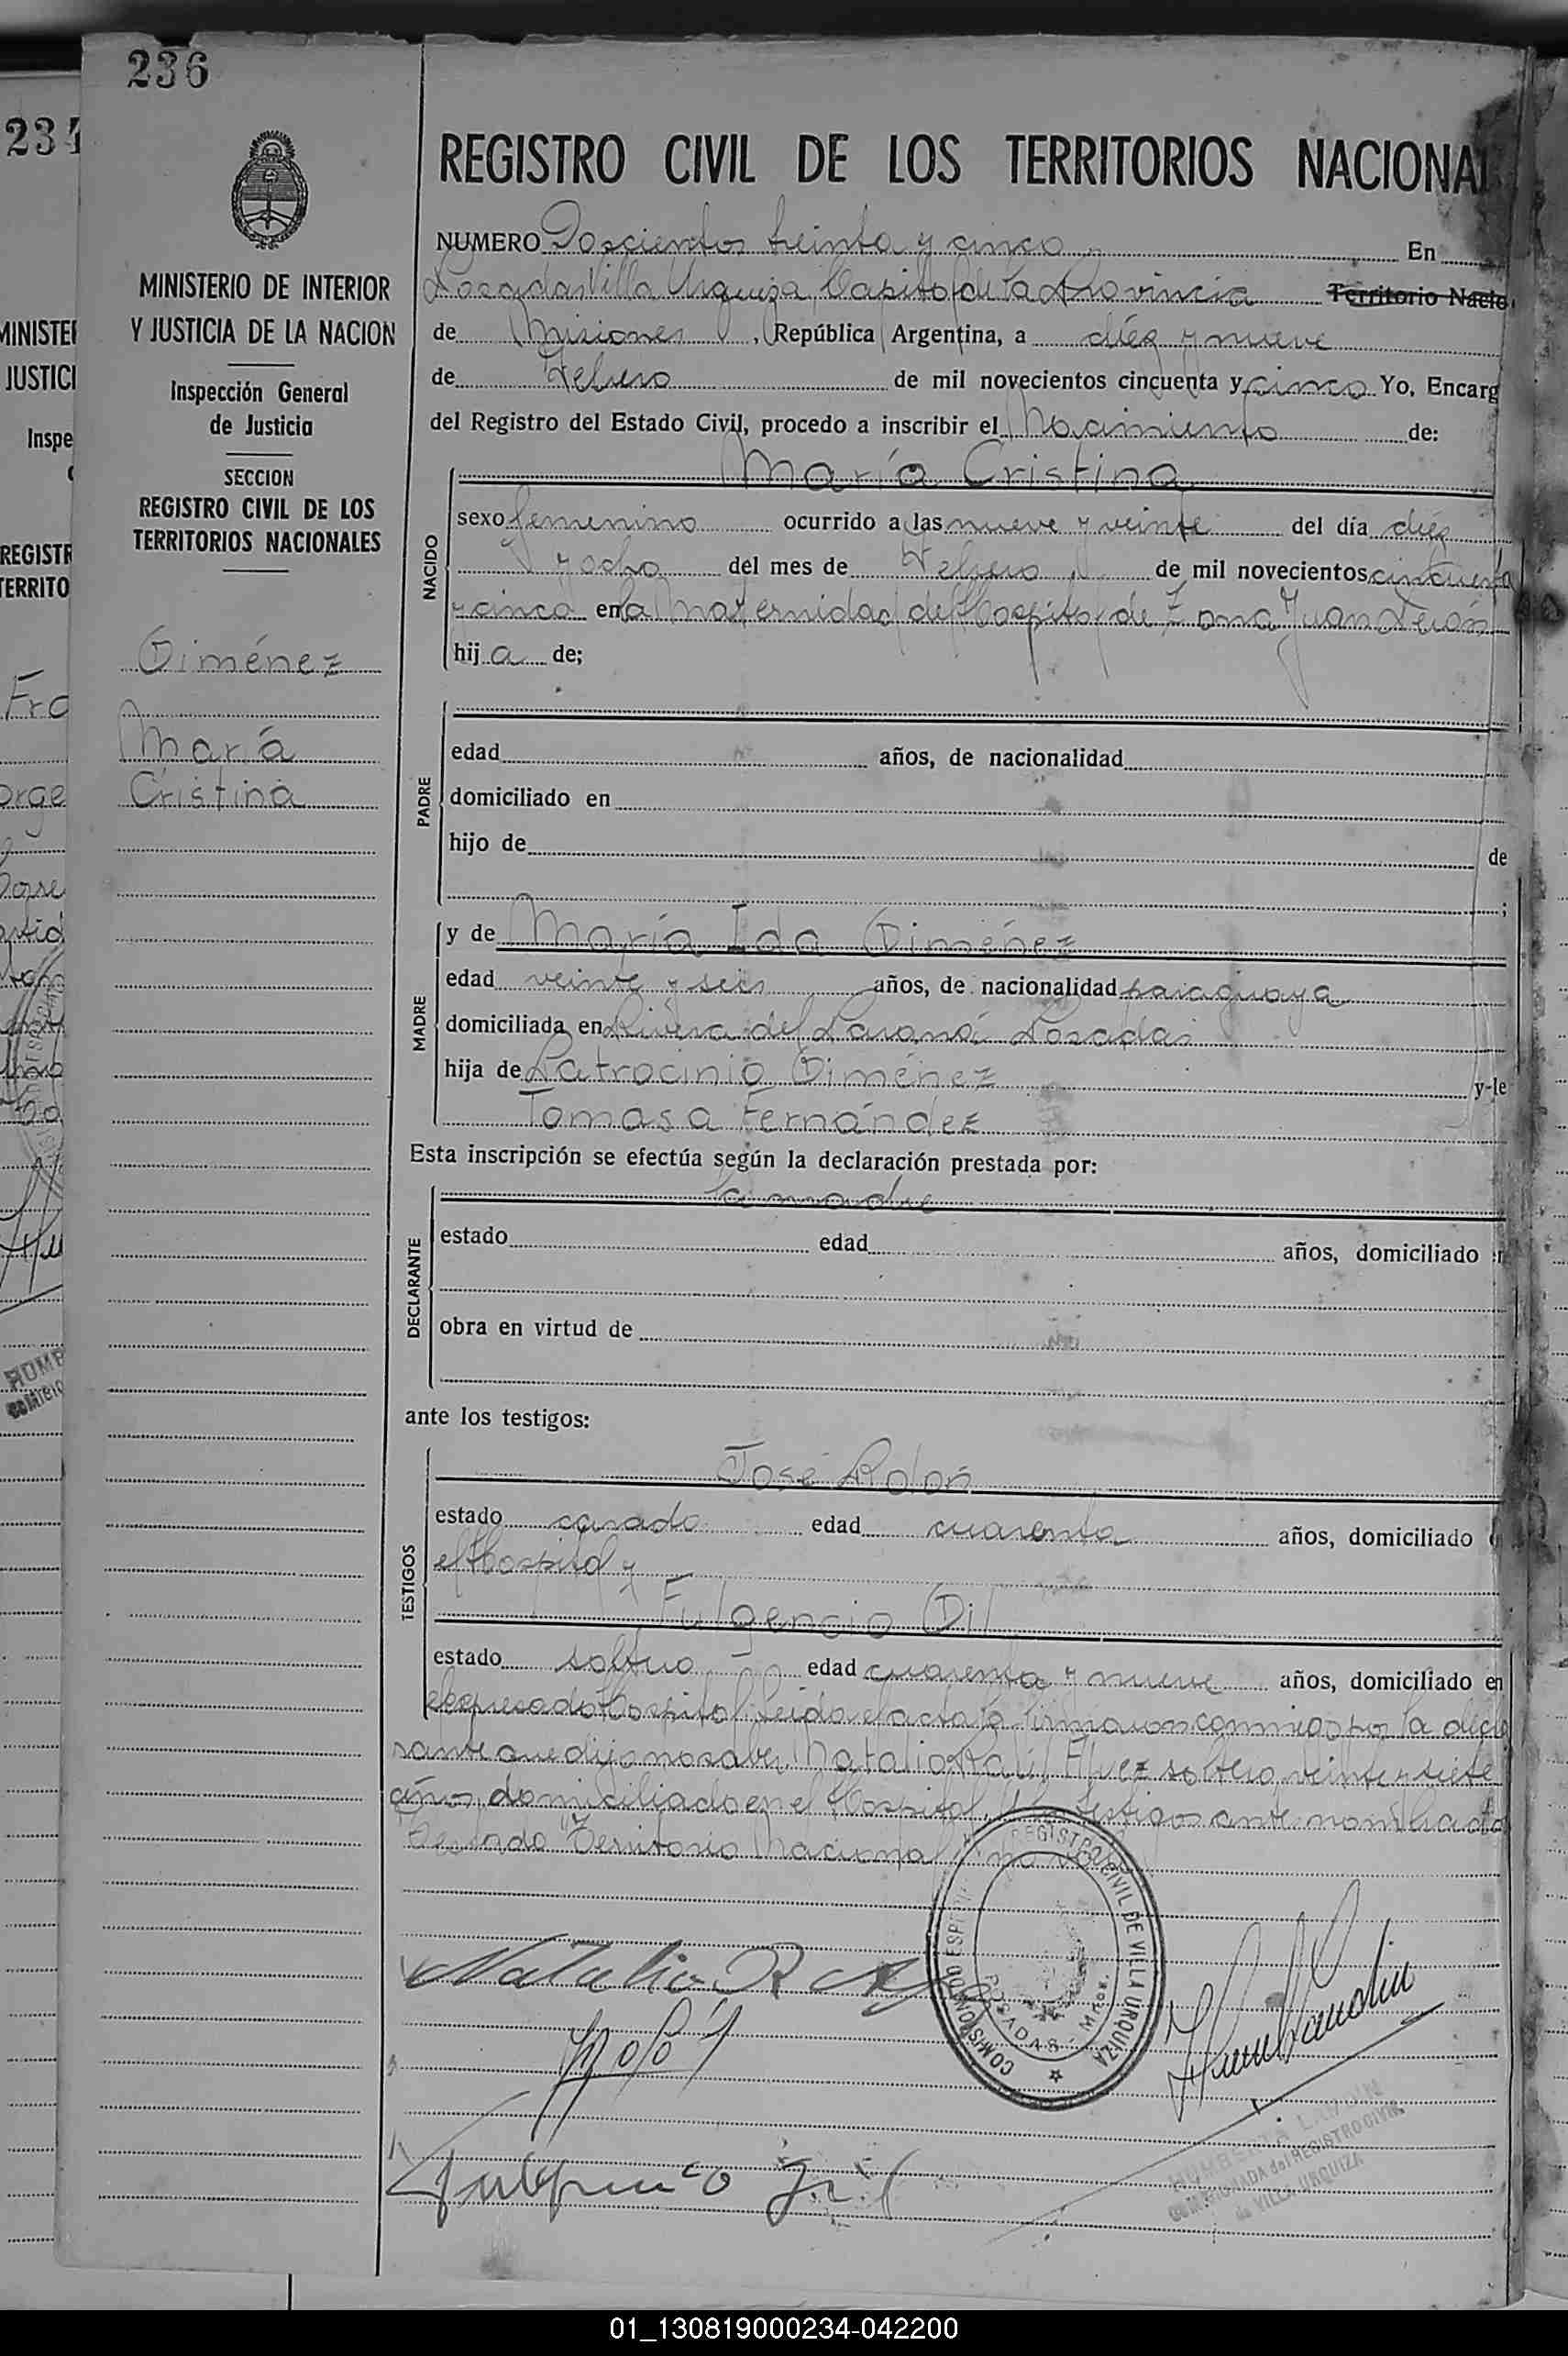 236
234
REGISTRO CIVIL DE LOS TERRITORIOS NACIONAL
MINISTERIO DE INTERIOR
Y JUSTICIA DE LA NACION
Inspección General
de Justicia
SECCION
REGISTRO CIVIL DE LOS
TERRITORIOS NACIONALES
Giménez
María
Cristina
NUMERO Doscientos treinta y cinco En
Posadas Villa Urquiza, Capital de la Provincia Territorio Nacio
de Misiones, República Argentina, a diéz y nueve
de Febrero de mil novecientos cincuenta y cinco Yo, Encarg
del Registro del Estado Civil, procedo a inscribir el Nacimiento de:
María Cristina
NACIDO
sexo femenino ocurrido a las nueve y veinte del día diéz
y ocho del mes de Febrero de mil novecientos cincuenta
y cinco en la Maternidad del Hospital de Zona Juan Perón
hija de;
PADRE
edad años, de nacionalidad
domiciliado en
hijo de de
;
MADRE
y de María Ida Giménez
edad veinte y seis años, de nacionalidad paraguaya
domiciliada en Rivera del Paraná Posadas
hija de Patrocinio Giménez y de
Tomasa Fernández
Esta inscripción se efectúa según la declaración prestada por:
la madre
DECLARANTE
estado edad años, domiciliado en
obra en virtud de
ante los testigos:
TESTIGOS
José Rolón
estado casado edad cuarenta años, domiciliado
el Hospital y
Fulgencio Gil
estado soltero edad cuarenta y nueve años, domiciliado en
el expresado Hospital. Leida el acta la firmaron conmigo por la decla
rante que dijo no saber, Natalio Raúl soltero, veinte y siete
años, domiciliado en el Hospital, testigos ante nombrados
Testado "Territorio Nacional" no vale
Natalio R
REGISTRO CIVIL DE VILLA URQUIZA
POSADAS - Mnes.
Fulgencio Gil
REGISTRO CIVIL
de VILLA URQUIZA
01_130819000234-042200